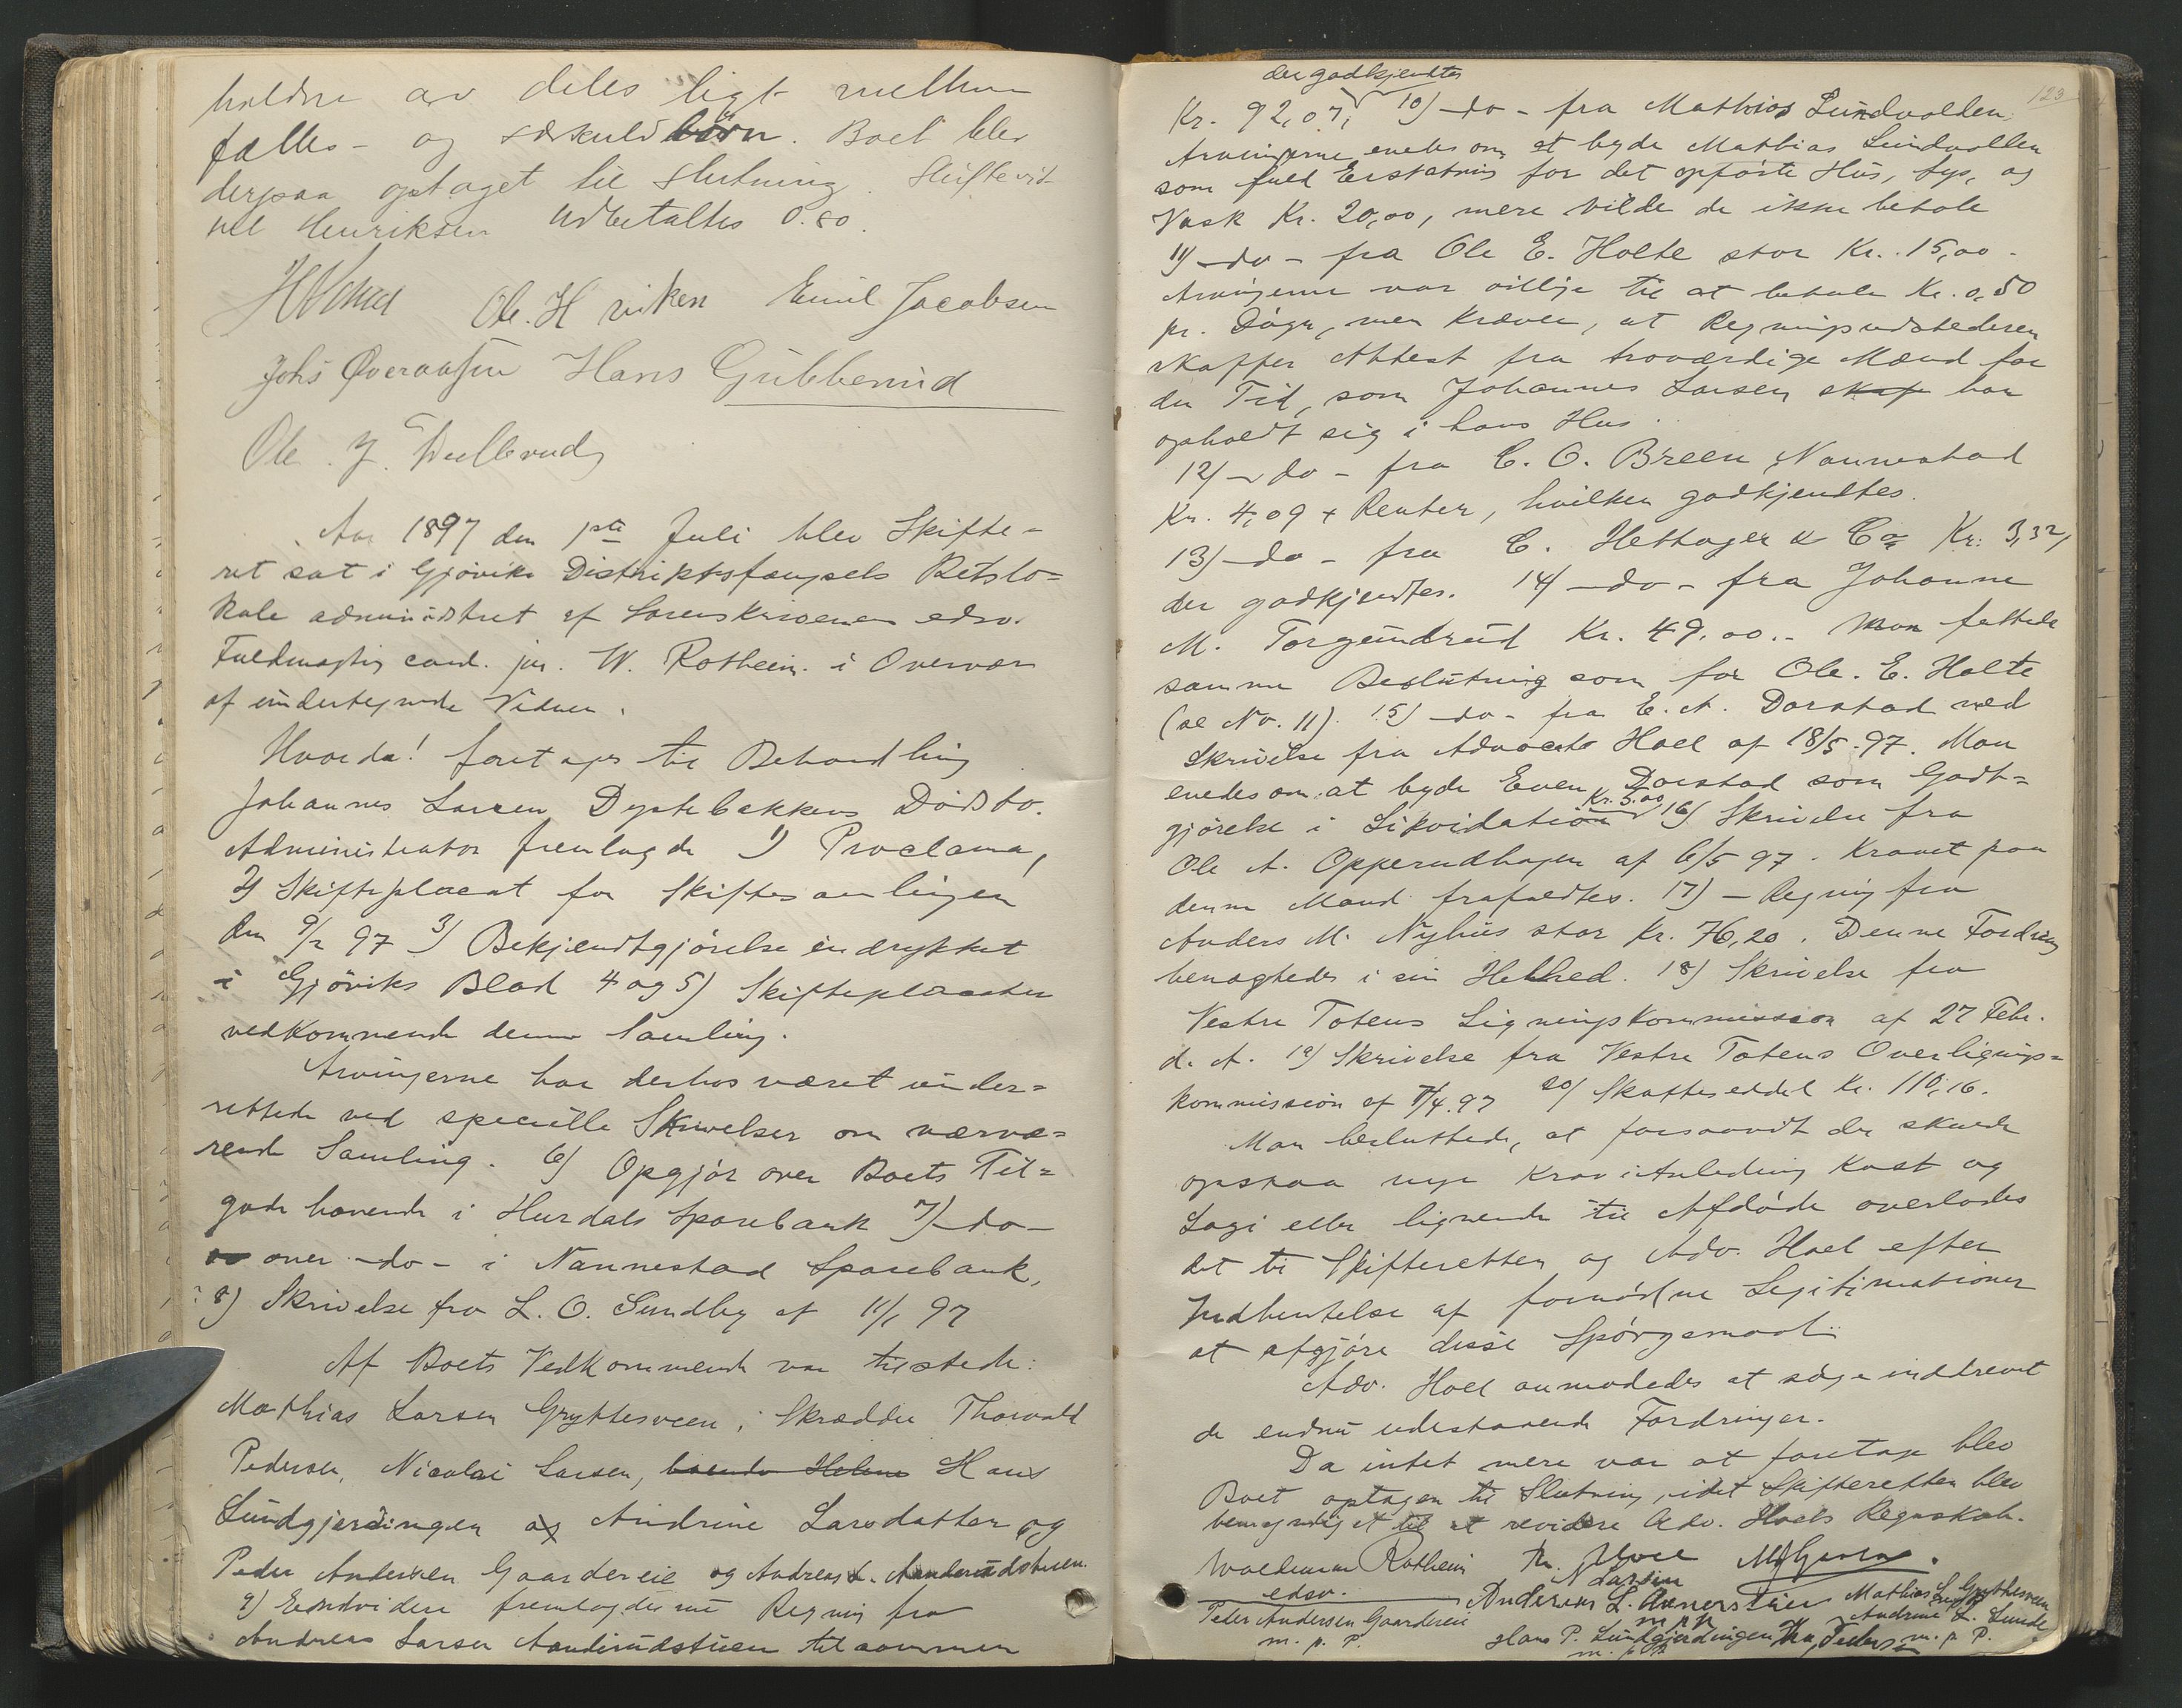 holdne av deles ligt mellem
fælles- og særkuldbörn. Boet blev
derpaa optaget til slutning. Skiftevit-
Henriksen udbetaltes 0.80.
Ole. H viken Emil Jacobsen
Johs Øveraasen Hans Gubberud
Ole J.
Aar 1897 den 1ste Juli blev Skifte-
ret sat i Gjöviks Distriktsfængsels Retslo-
kale administret af Sorenskriveren edsv.
Fuldmægtig cand. jur. W. Rotheim i Overvær
af undertegnede Vidner.
Hvorda! foretages til Behandling
Johannes Larsen Dystebakkens Dödsbo.
Administrator fremlagde 1) Proclama,
2) Skifteplacat for Skiftesamlingen
den 9/2 97 3) Bekjendtgjörelse indrykket
i Gjöviks Blad 4 og 5) Skifteplacater
vedkommende denne Samling.
Arvingerne har derhos været under-
rettede ved specielle Skrivelser om nærvæ-
rende Samling. 6) Opgjör over Boets Til-
gode havende i Hurdals Sparebank 7) -do-
over -do- i Nannestad Sparebank,
8) Skrivelse fra L. O. Sundby af 11/1 97
Af Boets Vedkommende var tilstede:
Mathias Larsen Gryttesveen, Skrædder Thorvald
Pedersen, Nicolai Larsen, Hans
Lundgjerdingen og Andrine Larsdatter og
Peder Andersen Gaardereie og Andreas L. Aanderudstuen.
9) Endvidere fremlagdes nu Regning fra
Andreas Larsen Aanderudstuen tilsammen
123
der godkjendtes
Kr. 92,07, 10) -do- fra Mathias Lundvolden.
Arvingerne enedes om at byde Mathias Lundvollen
som fuld Erstatning for det opförte Hus, Lys, og
Vask Kr. 20,00, mere vilde de ikke betale
11) -do- fra Ole E. Holte stor Kr. 15,00.
Arvingerne var villige til at betale Kr. 0,50
pr. Dögn, men kræver, at Regningsudstederen
skaffer Attest fra troværdige Mænd for
den Tid, som Johannes Larsen har
opholdt sig i hans Hus.
12) -do- fra C. O. Breen, Nannestad
Kr. 4,09 + Renter, hvilken godkjendtes.
13) -do- fra C. Hethager & Co Kr: 3,32,
der godkjendtes. 14) -do- fra Johanne
M. Torgundrud Kr. 49.00.- Man fattede
samme Beslutning som for Ole. E. Holte
(se No. 11). 15) -do- fra E. A. Dorstad ved
Skrivelse fra Advocat Hoel af 18/5.97. Man
enedes om at byde Even Dorstad som Godt-
gjörelse i Likvidation Kr. 5.00 16) Skrivelse fra
Ole A. Opperudhagen af 6/5 97. Kravet paa
denne Mand frafaldtes. 17) - Regning fra
Anders M. Nyhus stor Kr. 76,20. Denne Fordring
benægtedes i sin Helhed. 18) Skrivelse fra
Vestre Totens Ligningskommission af 27 Febr.
d. A. 19) Skrivelse fra Vestre Totens Overlignings-
kommission af 7/4.97 20) Skatteseddel Kr. 110,16.
Man besluttede, at forsaavidt der skulde
opstaa nye Krav i Anledning Kost og
Logi eller lignende til Afdöde overlodes
det til Skifteretten og Adv. Hoel efter
Indhentelse af fornödne Legitimationer
at afgjöre disse Spörgsmaal.
Adv. Hoel anmodedes at söge inddrevet
de endnu udestaaende Fordringer.
Da intet mere var at foretage blev
Boet optagen til Slutning, idet Skifteretten blev
bemyndiget til at revidere Adv. Hoels Regnskab.
Woldemar Rotheim Th. Hoel
edsv. N Larsen
Andereas L. Mathias L Gryttesveen
Peder Andersen Gaardereie m p p Andrine L. Lunde
m. p. P. Hans P. Lundgjerdingen Th. Pedersen m. p P.